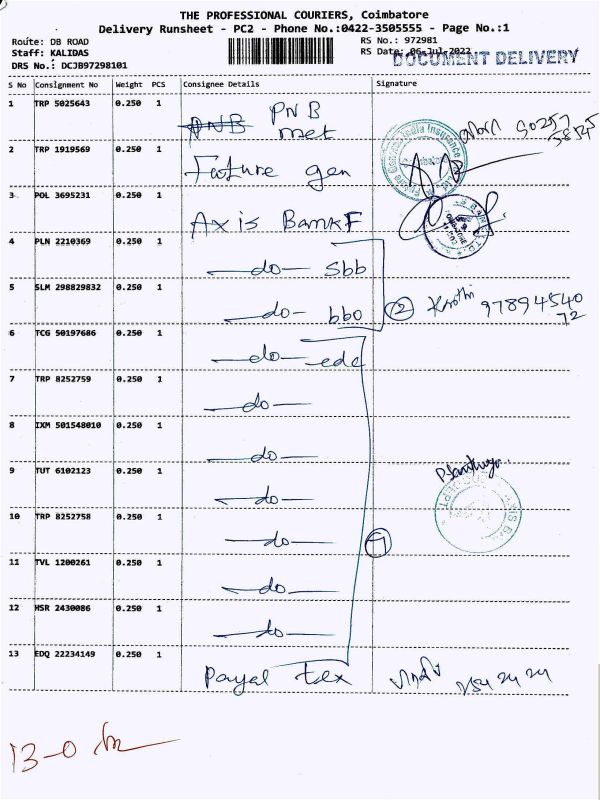 THE PROFESSIONAL COURIERS, Coimbatore
Delivery Runsheet - PC2 - Phone No.:0422-3505555 - Page No.:1
Route: DB ROAD
Staff: KALIDAS
DRS No.: DCJB97298101
RS No.: 972981
RS Date: 06-Jul-2022
DOCUMENT DELIVERY
S No Consignment No Weight PCS Consignee Details Signature
1 TRP 5025643 0.250 1 PNB
PNB met
2 TRP 1919569 0.250 1 Future gen
3 POL 3695231 0.250 1 Axis Bank F
4 PLN 2210369 0.250 1 —do— Sbb
5 SLM 298829832 0.250 1 —do— bbo 2 9789454072
6 TCG 50197686 0.250 1 —do— edc
7 TRP 8252759 0.250 1 —do—
8 IXM 501548010 0.250 1 —do—
9 TUT 6102123 0.250 1 —do—
10 TRP 8252758 0.250 1 —do— 7
11 TVL 1200261 0.250 1 —do—
12 HSR 2430086 0.250 1 —do—
13 EDQ 22234149 0.250 1 Payal tex
13-0